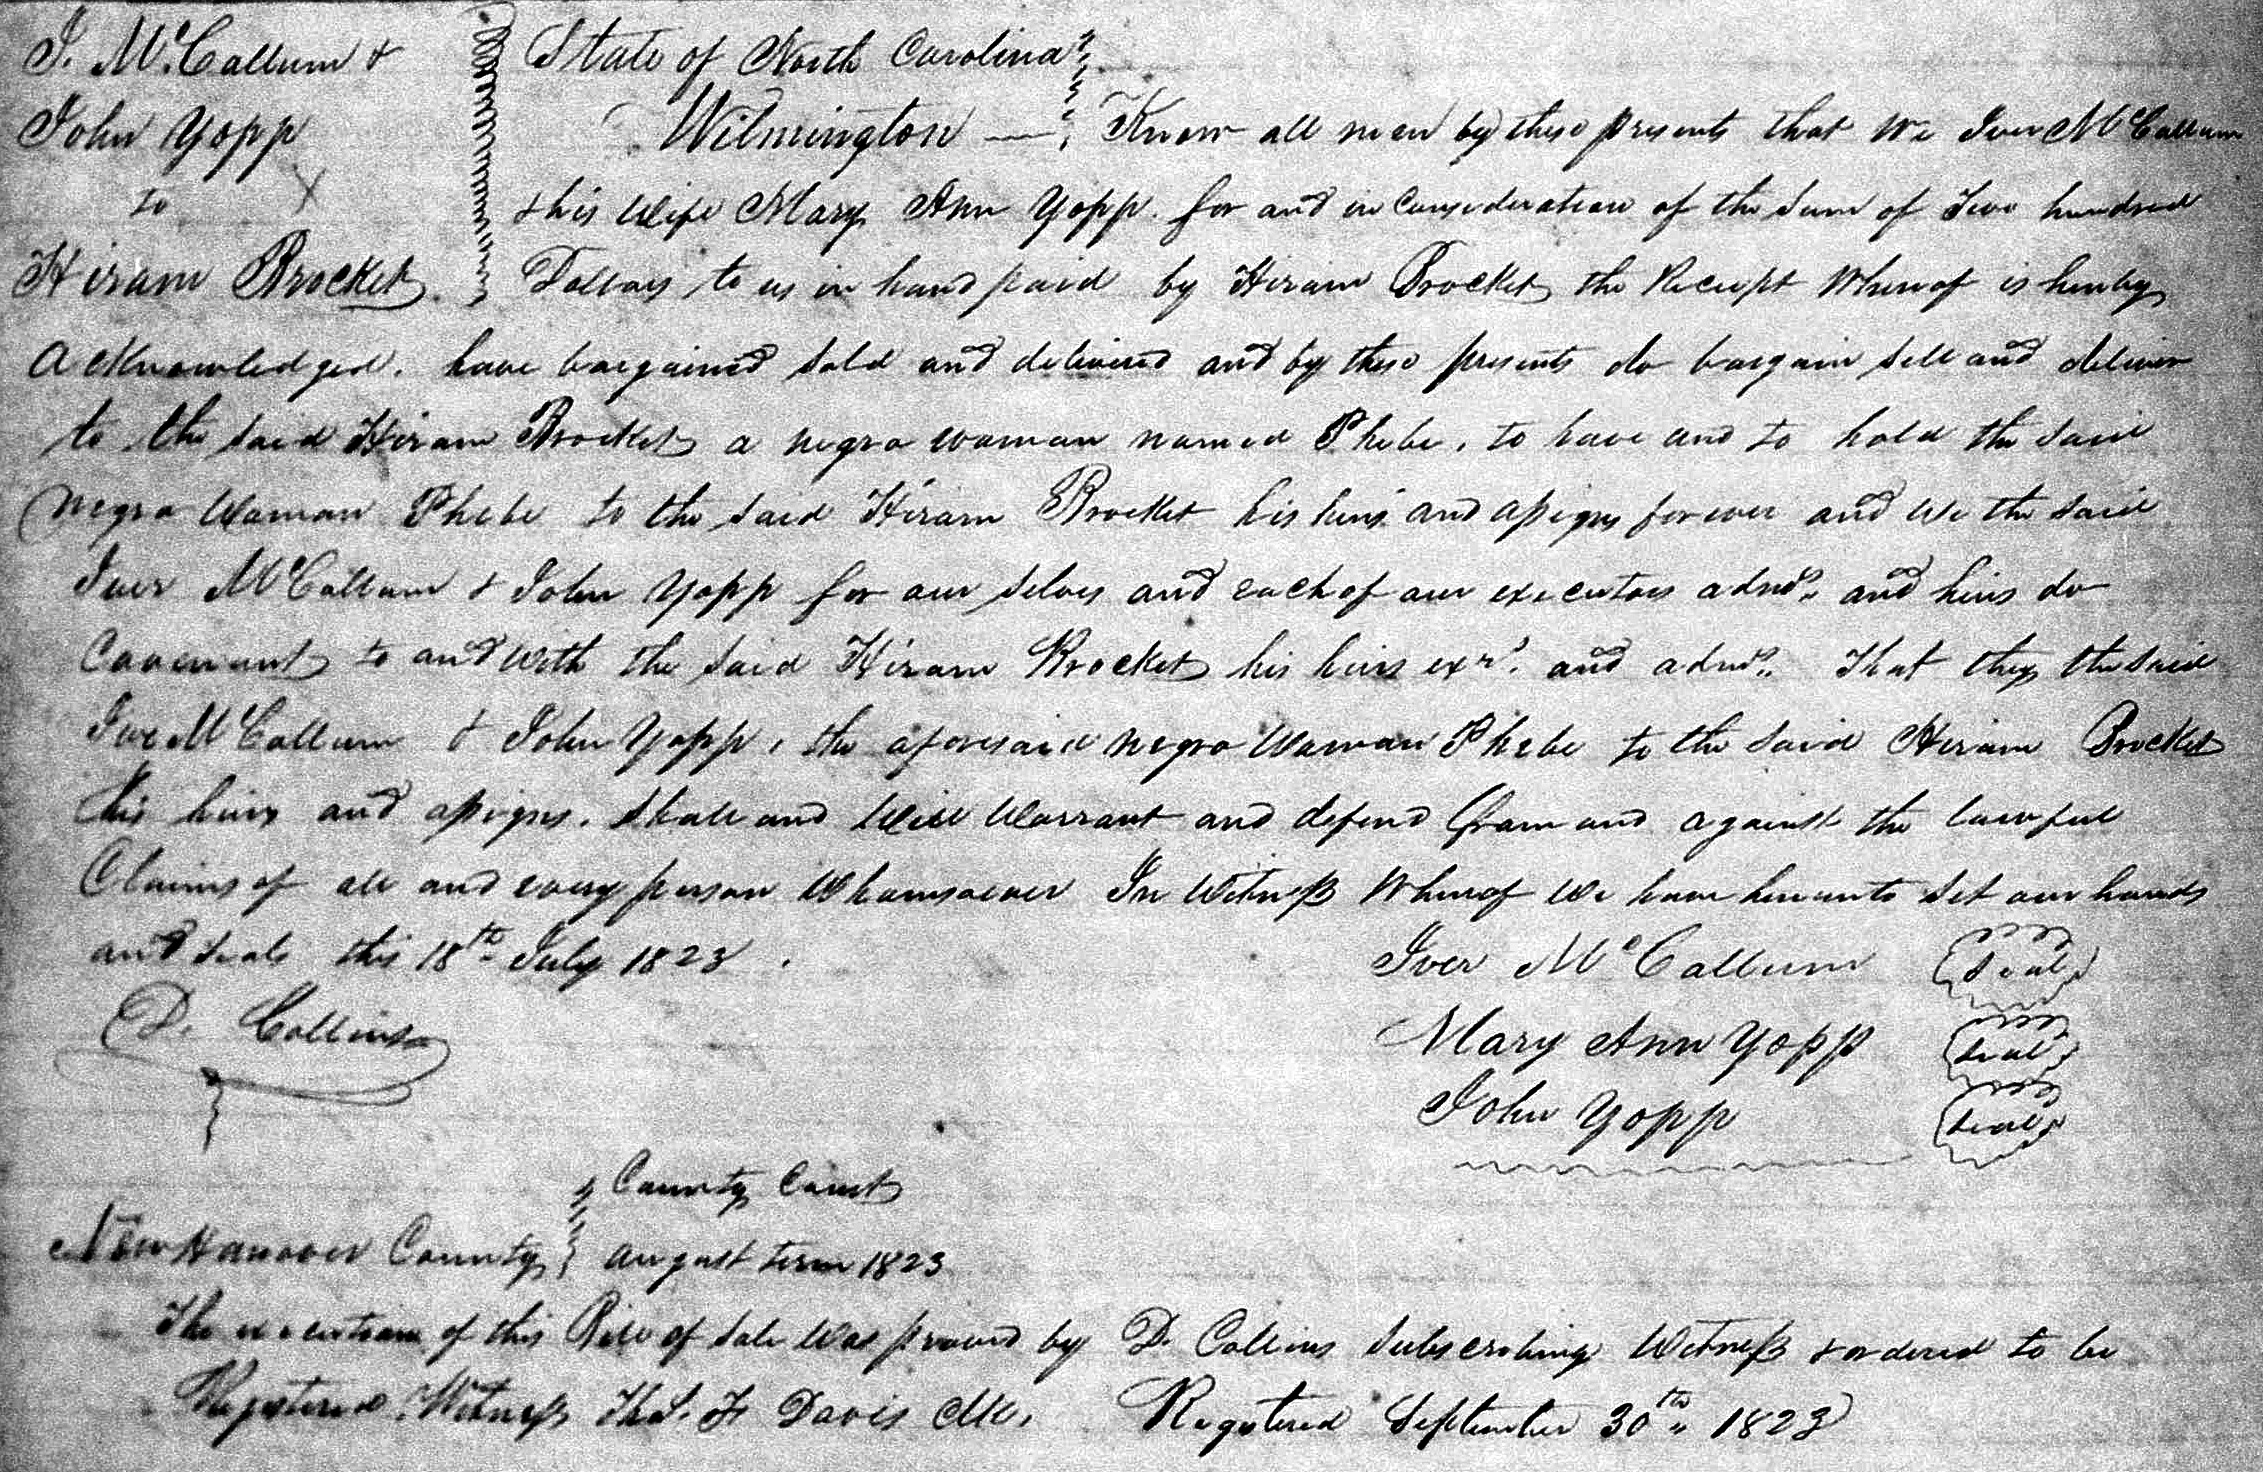 I. McCallum &
John Yopp
to
Hiram Brocket
State of North Carolina
Wilmington — Know all men by these presents that We Iver McCallum
& his Wife Mary Ann Yopp. for and in Consideration of the Sum of Two hundred
Dollars to us in hand paid by Hiram Brocket the Receipt Whereof is hereby
Acknowledged. have bargained Sold and delivered and by these presents do bargain Sell and deliver
to the Said Hiram Brocket a negro woman named Phebe, to have and to hold the Said
Negro Woman Phebe to the Said Hiram Brocket his heirs and assigns forever and We the Said
Iver McCallum & John Yopp for our Selves and each of our executors adms. and heirs do
Covenant to and With the Said Hiram Brocket his heirs exrs. and adms. That they the Said
Iver McCallum & John Yopp, the aforesaid Negro Woman Phebe to the Said Hiram Brocket
his heirs and assigns. Shall and Will Warrant and defend from and against the lawful
Claims of all and every person Whomsoever In Witness Whereof We have hereunto Set our hands
and Seals this 18th July 1823.
Iver McCallum (Seal)
D. Collins
Mary Ann Yopp (Seal)
John Yopp (Seal)
County Court
New Hanover County August term 1823
The execution of this Bill of Sale Was proved by D. Collins Subscribing Witness & ordered to be
Registered. Witness Thos. F Davis Clk. Registered September 30th 1823